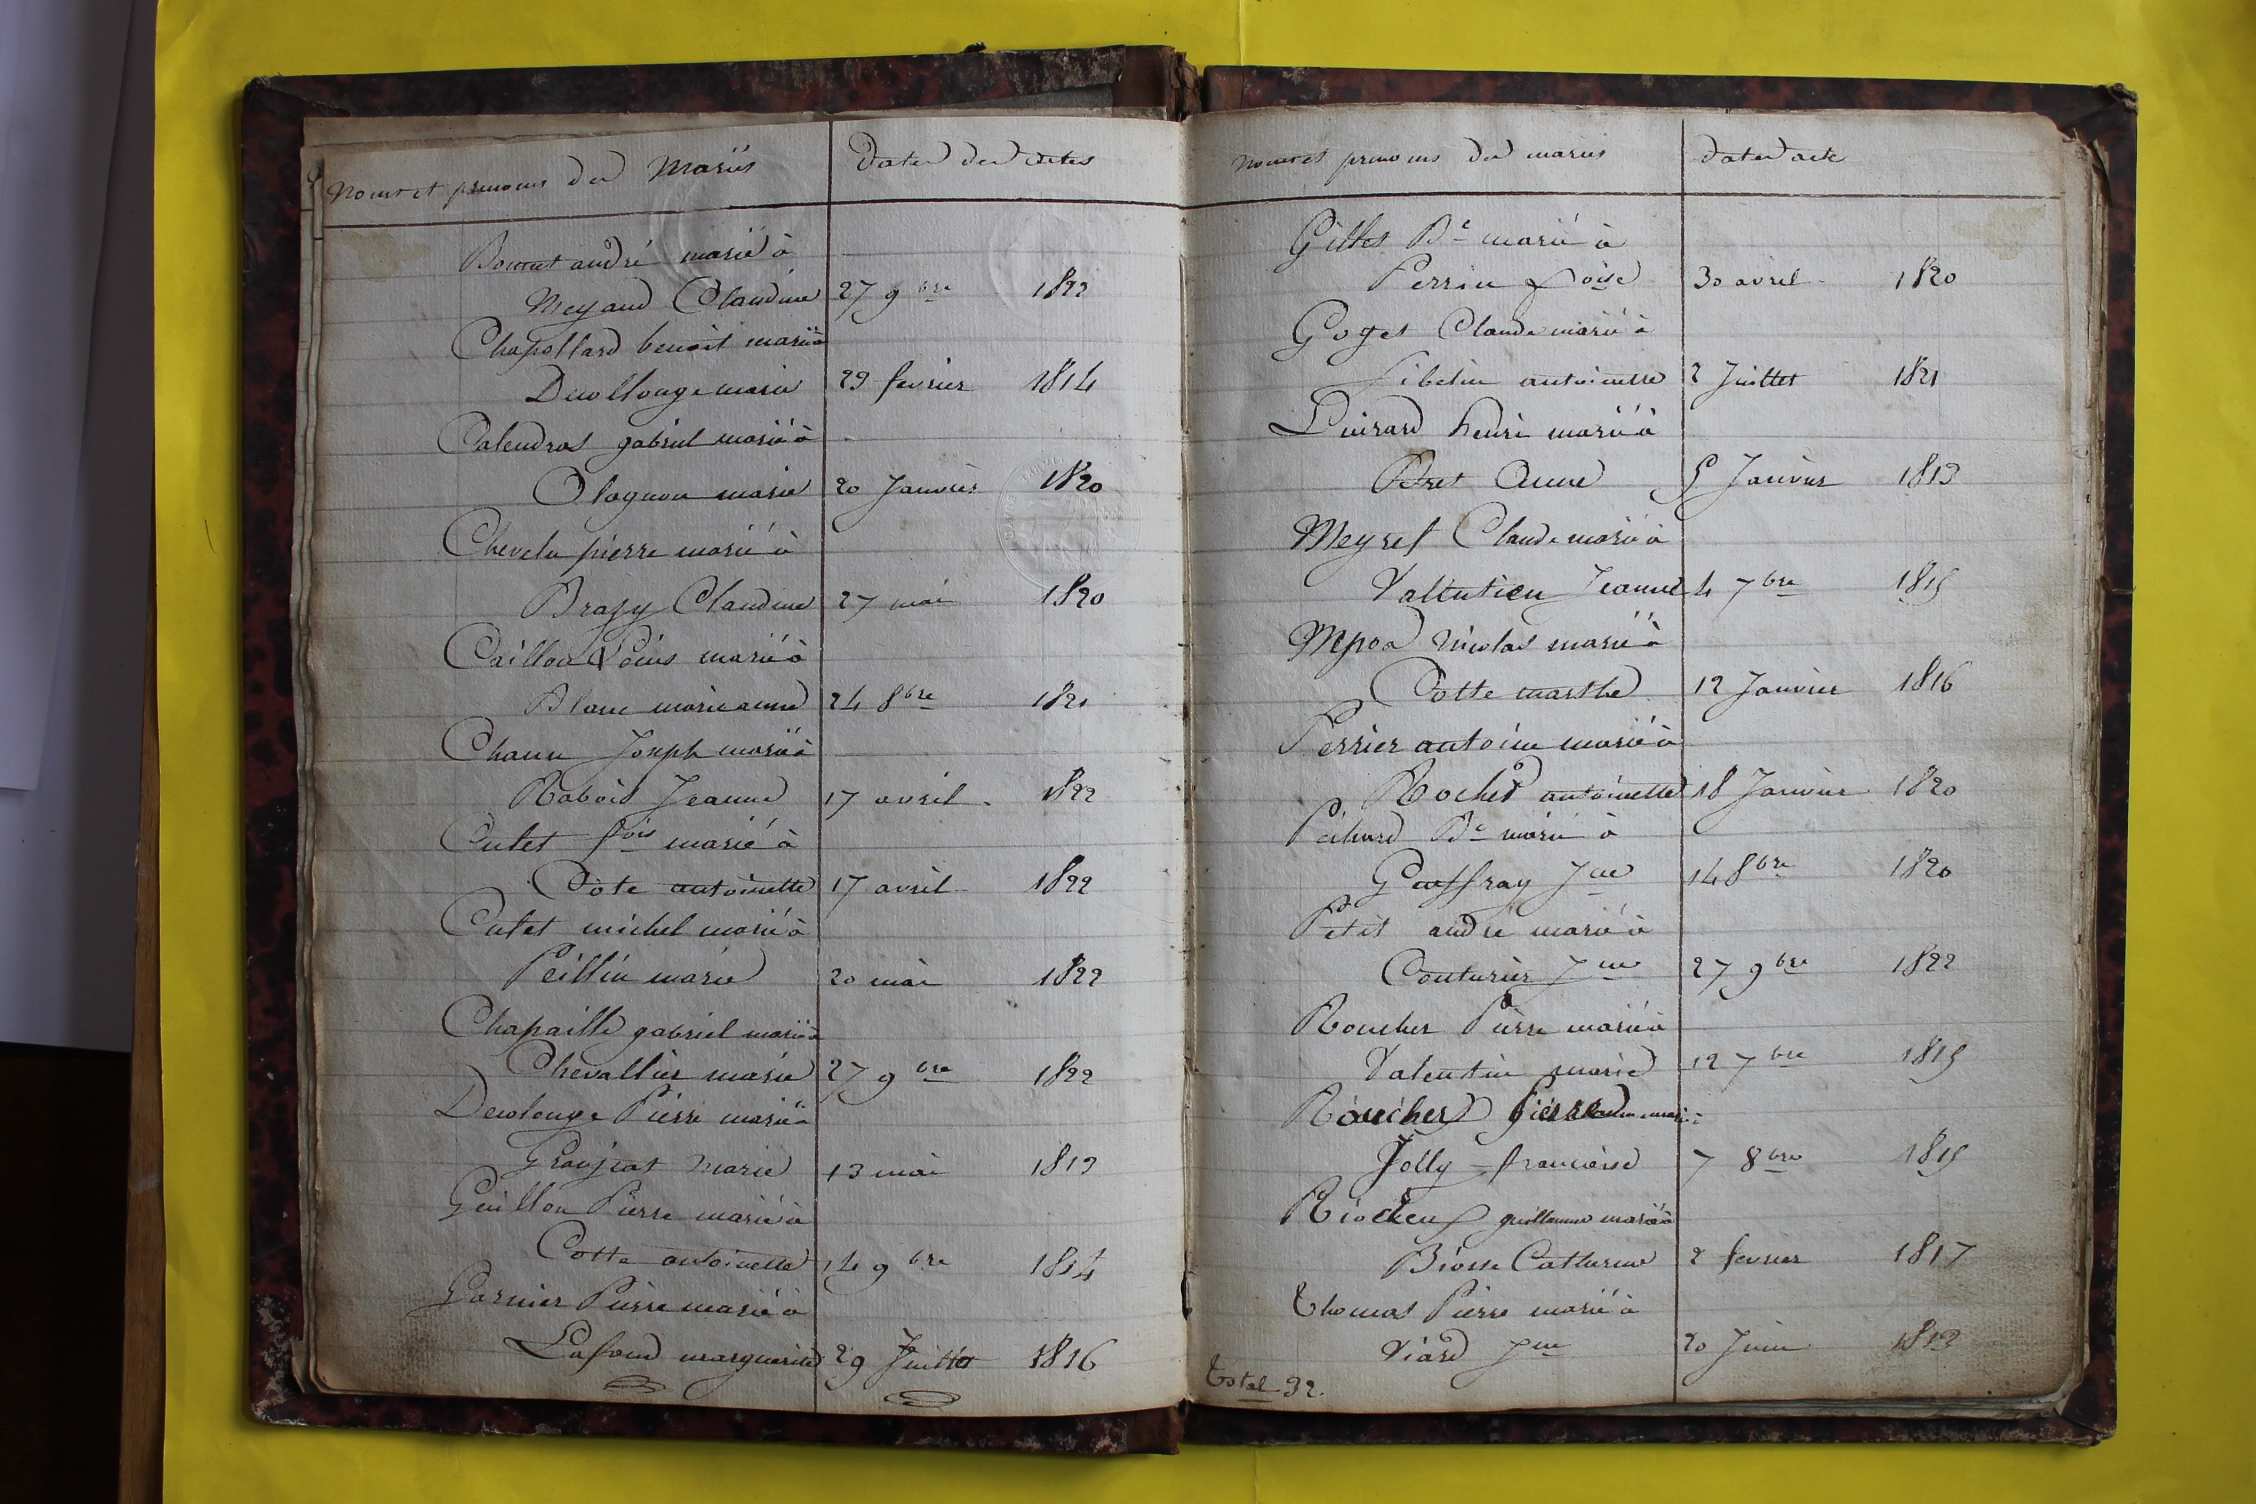 Noms et prenoms des Mariés dates des actes
Bonnet andré marié à
Meyaud Claudine 27 9bre 1822
Chapollard benoit marié à
Decollonge marie 29 fevrier 1814
Calendras gabriel marié à
Olagnon marie 20 Janvier 1820
Chevelu pierre marié à
Brazy Claudine 27 mai 1820
Caillon Louis marié à
Blanc marie anne 24 8bre 1821
Joseph marié à
Rabois Jeanne 17 avril 1822
Culet fois marié à
Cote antoinette 17 avril 1822
Culet michel marié à
Peillin marie 20 mai 1822
Chapaille gabriel marié à
Chevallier marie 27 9bre 1822
Decolonge Pierre marié à
Granjeat Marie 13 mai 1813
Guillon Pierre marié à
Cotte antoinette 14 9bre 1814
Garnier Pierre marié à
Lafond marguerite 29 Juillet 1816
Noms et prenoms des mariés dates acte
Gilles Bt marié à
Perrin foise 30 avril 1820
Goget Claude marié à
Sibelin antoinette 2 Juillet 1821
henri marié à
Peret Anne 5 Janvier 1813
Meyret Claude marié à
Jeanne 4 7bre 1815
nicolas marié à
Cotte marthe 12 Janvier 1816
Perrier antoine marié à
Roche antoinette 18 Janvier 1820
Bt marié à
Geoffray Jne 14 8bre 1820
Petit andré marié à
Couturier Jne 27 9bre 1822
Roucher Pierre marié à
Valentin marie 12 7bre 1815
Roucher Pierre
Jolly francoise 7 8bre 1815
guillaume marié à
Biosse Catherine 2 fevrier 1817
Thomas Pierre marié à
Viard Jne 20 Juin 1813
Total 92.